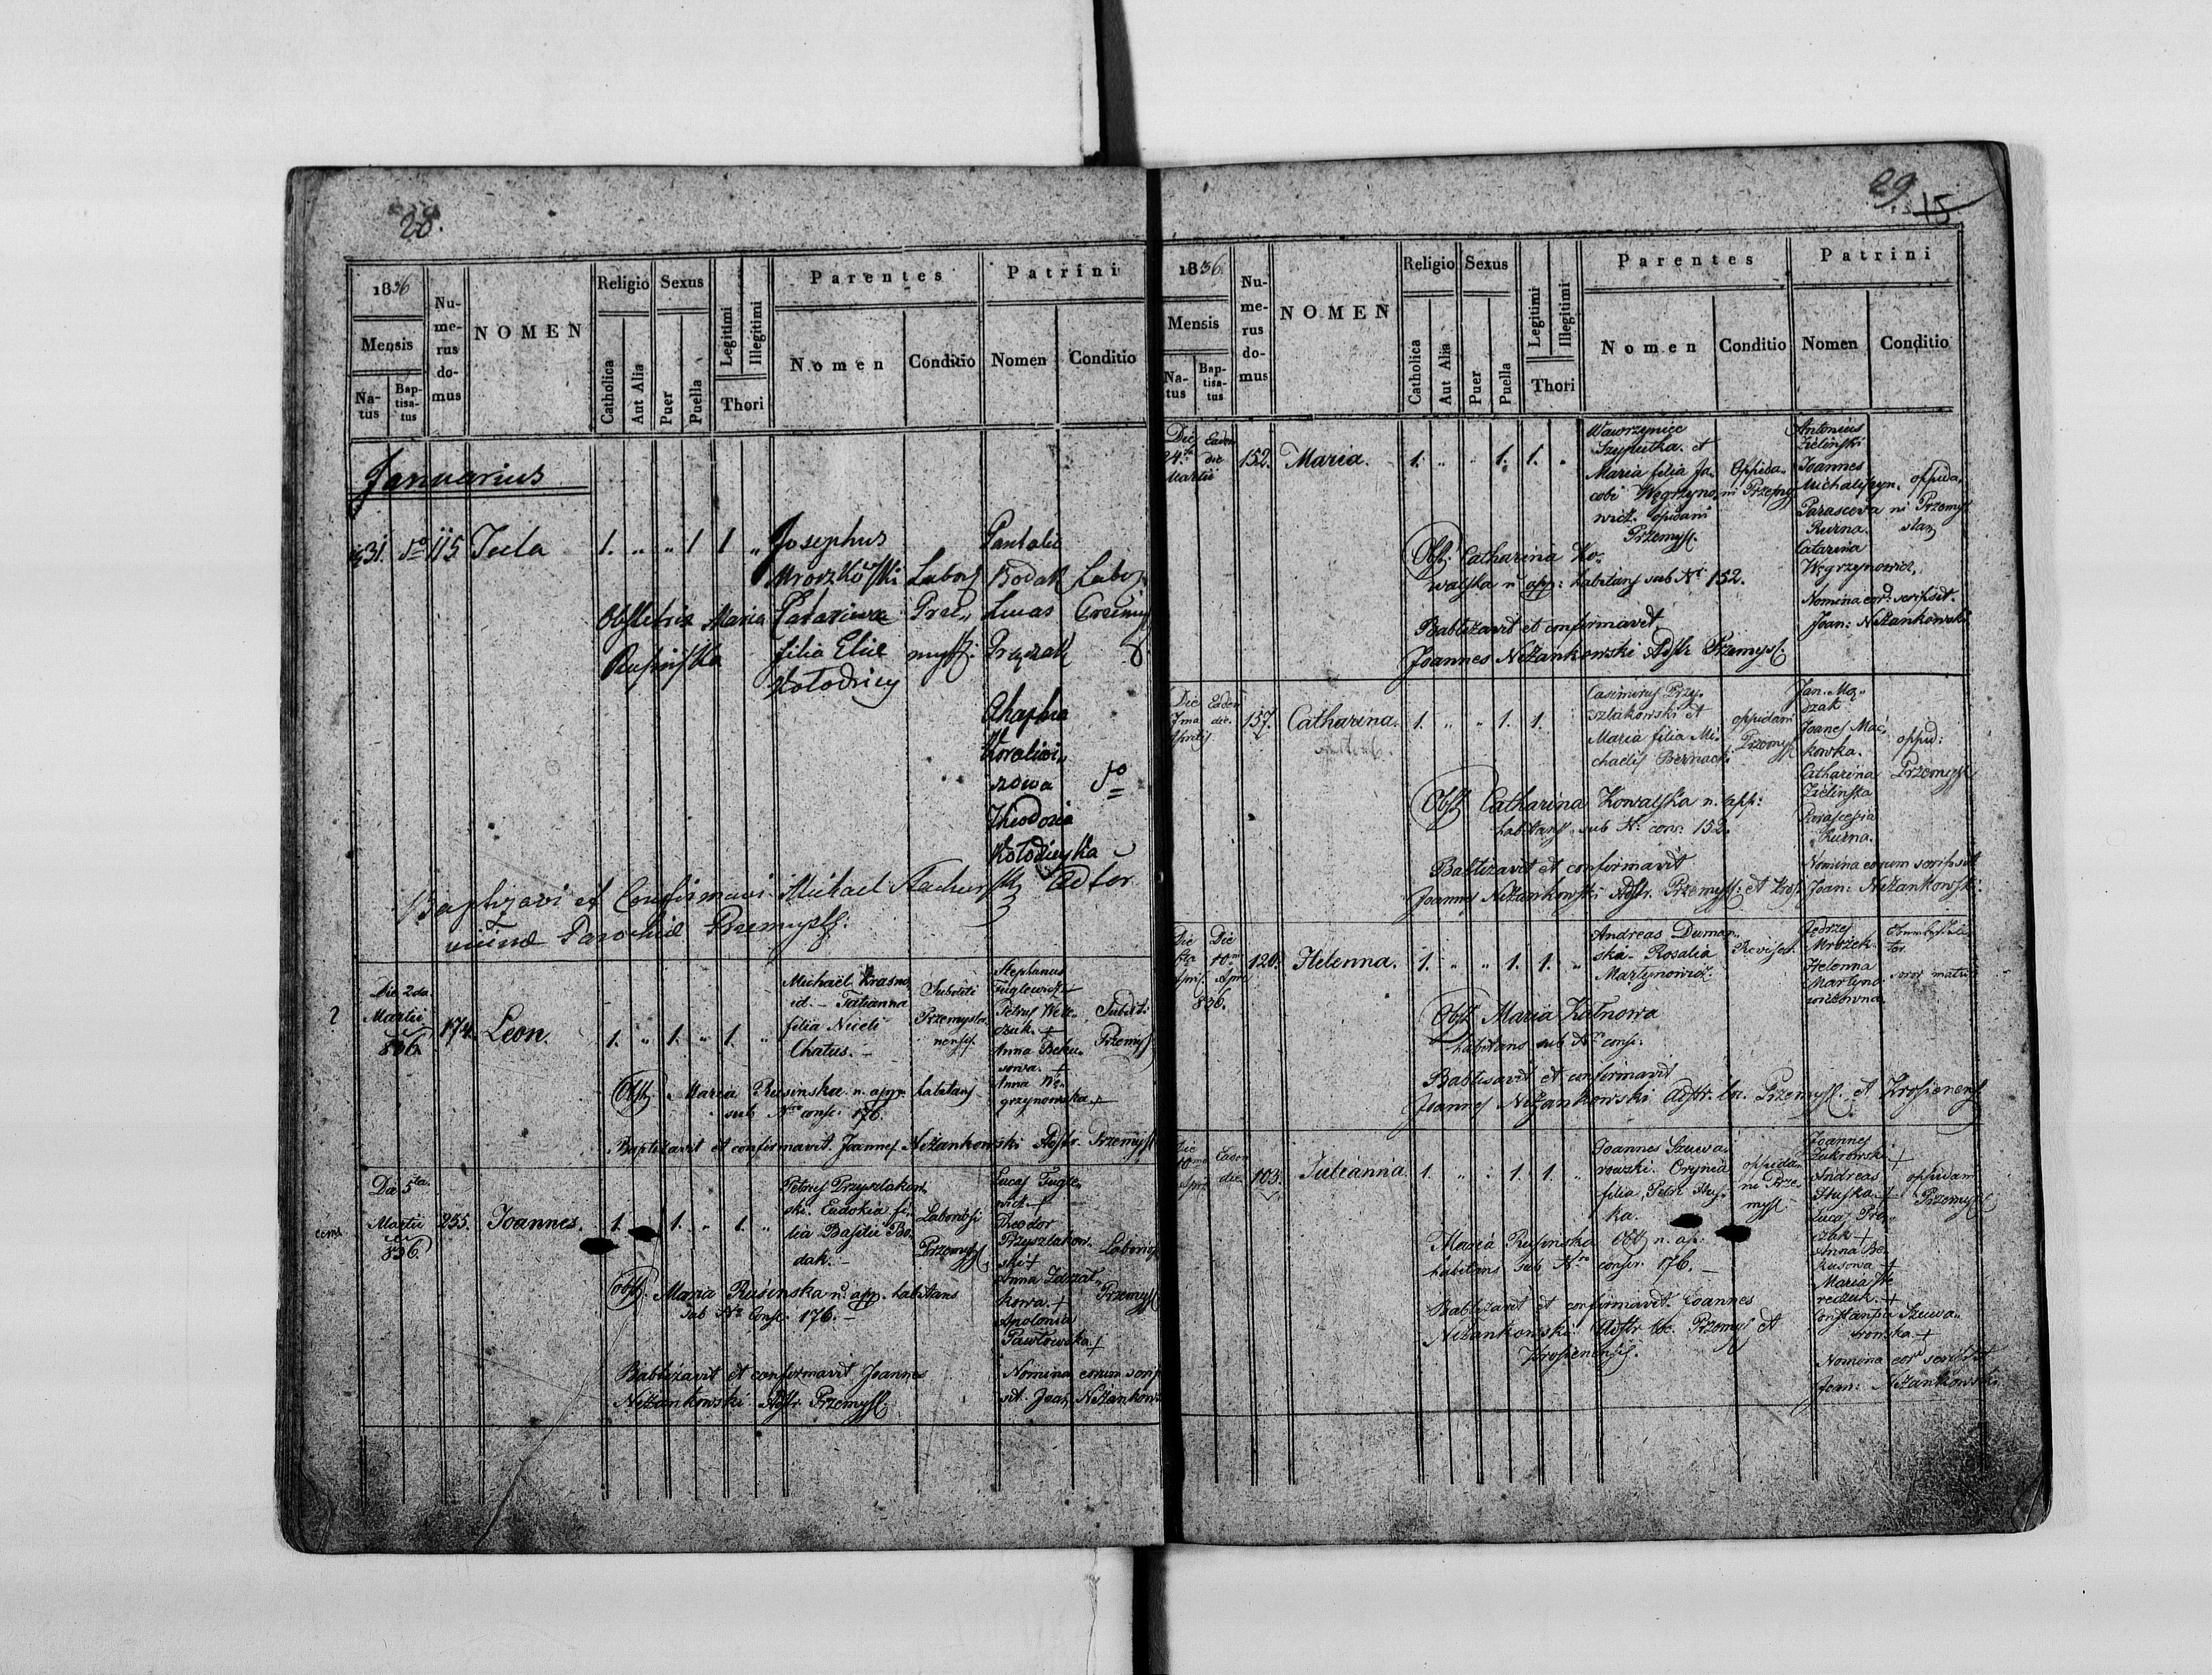 28.
1836
Mensis
Na-
tus
Bap-
tisa-
tus
Nu-
me-
rus
do-
mus
NOMEN
Religio
Catholica
Aut Alia
Sexus
Puer
Puella
Legitimi
Illegitimi
Thori
Parentes
Nomen
Conditio
Patrini
Nomen
Conditio
Januarius
31. do 115 Tecla 1. " " 1 1 "
Josephus
Mroszkowski Labor
filia Eliae
Pantalie
Bodak Labor
Lucas
Obstetrix Maria
Rusinska
Theodozia
Kołodieyka
Baptizavi et Confirmavi Michael
Parochiae Premysl.
2
Die 2da
Martii
836.
174. Leon. 1. " 1. " 1. "
Michaël Krasno
id. – Tatianna
filia Niceti
Chatus. –
Subditi
Przemysla-
nensis.
Stephanus
Fuglewicz
Petrus Were-
czuk. +
Anna Beku-
sowa. +
Anna We-
grzynowska +
Subdit:
Przemysl
Obst. Maria Rusinska n. app. habitans
sub Nro consc. 176.
Baptizavit et confirmavit. Joannes Niżankowski Adstr. Przemysl
Die 5ta
Martii
836.
255. Joannes. 1. " 1. " 1. "
Petrus Przyszlakow
ski. Eudokia fi-
lia Basilii Bo-
dak. –
Laboriosi
Przemysl
Lucas Fugle-
wicz +
Theodor
Przyszlakow-
ski +
Anna
kowa. +
Apolonia
Pawłowska +
Laborios
Przemysl
Obst. Maria Rusinska n. app. habitans
sub Nro Consc. 176. –
Babtizavit et confirmavit Joannes
Niżankowski Adstr. Przemysl.
Nomina eorum scrip
sit. Joan. Niżankow
29
15
1836.
Mensis
Na-
tus
Bap-
tisa-
tus
Nu-
me-
rus
do-
mus
NOMEN
Religio
Catholica
Aut Alia
Sexus
Puer
Puella
Legitimi
Illegitimi
Thori
Parentes
Nomen
Conditio
Patrini
Nomen
Conditio
Die
24ta
Martii
Eadem
die
152. Maria. 1. " " 1. 1. "
Wawrzyniec
Szyputka. et
Maria filia Ja-
cobi Węgrzyno-
wicz. opidani
Przemysl.
Oppida-
ni Przemysl
Antonius
Zielinski
Joannes
Michaliszyn.
Parasceva
Kurna.
Catarina
Węgrzynowicz.
oppida-
ni Przemysl
Obst. Catharina Ko-
walska n. app: habitans sub Nr 152.
Nomina eor. scripsit.
Joan: Niżankowski
Babtizavit et confirmavit
Joannes Niżankowski Adstr. Przemysl.
Die
7ma
Aprilis
Eadem
die.
157. Catharina. 1. " " 1. 1.
Casimirus Przy-
szlakowski et
Maria filia Mi-
chaelis Bernacki
oppidani
Przemysl
Joanes Mać-
kowka.
Catharina
Zielinska
Kurna.
oppid:
Przemysl
Obst. Catharina Kowalska n. app:
habitans sub Nr. cons. 152.
Babtizavit et confirmavit
Joannes Niżankowski Adstr. Przemysl: et Kros
Nomina eorum scripsit
Joan: Niżankowski.
Die
Apri.
Die
10ma
Apri.
836.
120. Helenna. 1. " " 1. 1. "
Andreas Duman-
ska- Rosalia
Martynowicz.
Revisor.
Jędrzej
Mrozek.
Helenna
Martyno
wiczowna.
soror matris
Obst. Maria Kutnowa
habitans sub Nro consc:
Babtisavit et confirmavit
Joannes Niżankowski Adstr. loc. Przemysl. et Krosienens
Die
10ma
Apri.
Eadem
die.
103. Julianna. 1. " " 1. 1. "
Joannes Szuwa-
rowski. Orynia
filia Petri Hus-
ka.
oppida-
ni Prze-
mysl
Joannes
Zukrowski +
Andreas
Huska +
Lucas Pro-
czak +
Anna Be-
kusowa +
Maria We
reczuk. +
Constantia Szuwa-
rowska. +
oppidani
Przemysl
Maria Rusinska Obst. n. ap:
habitans sub Nro conscr. 176. –
Babtizavit et confirmavit. Joannes
Niżankowski Adstr. loc. Przemysl et
Krosienensis.
Nomina eor. scripsit
Joan: Niżankowski.